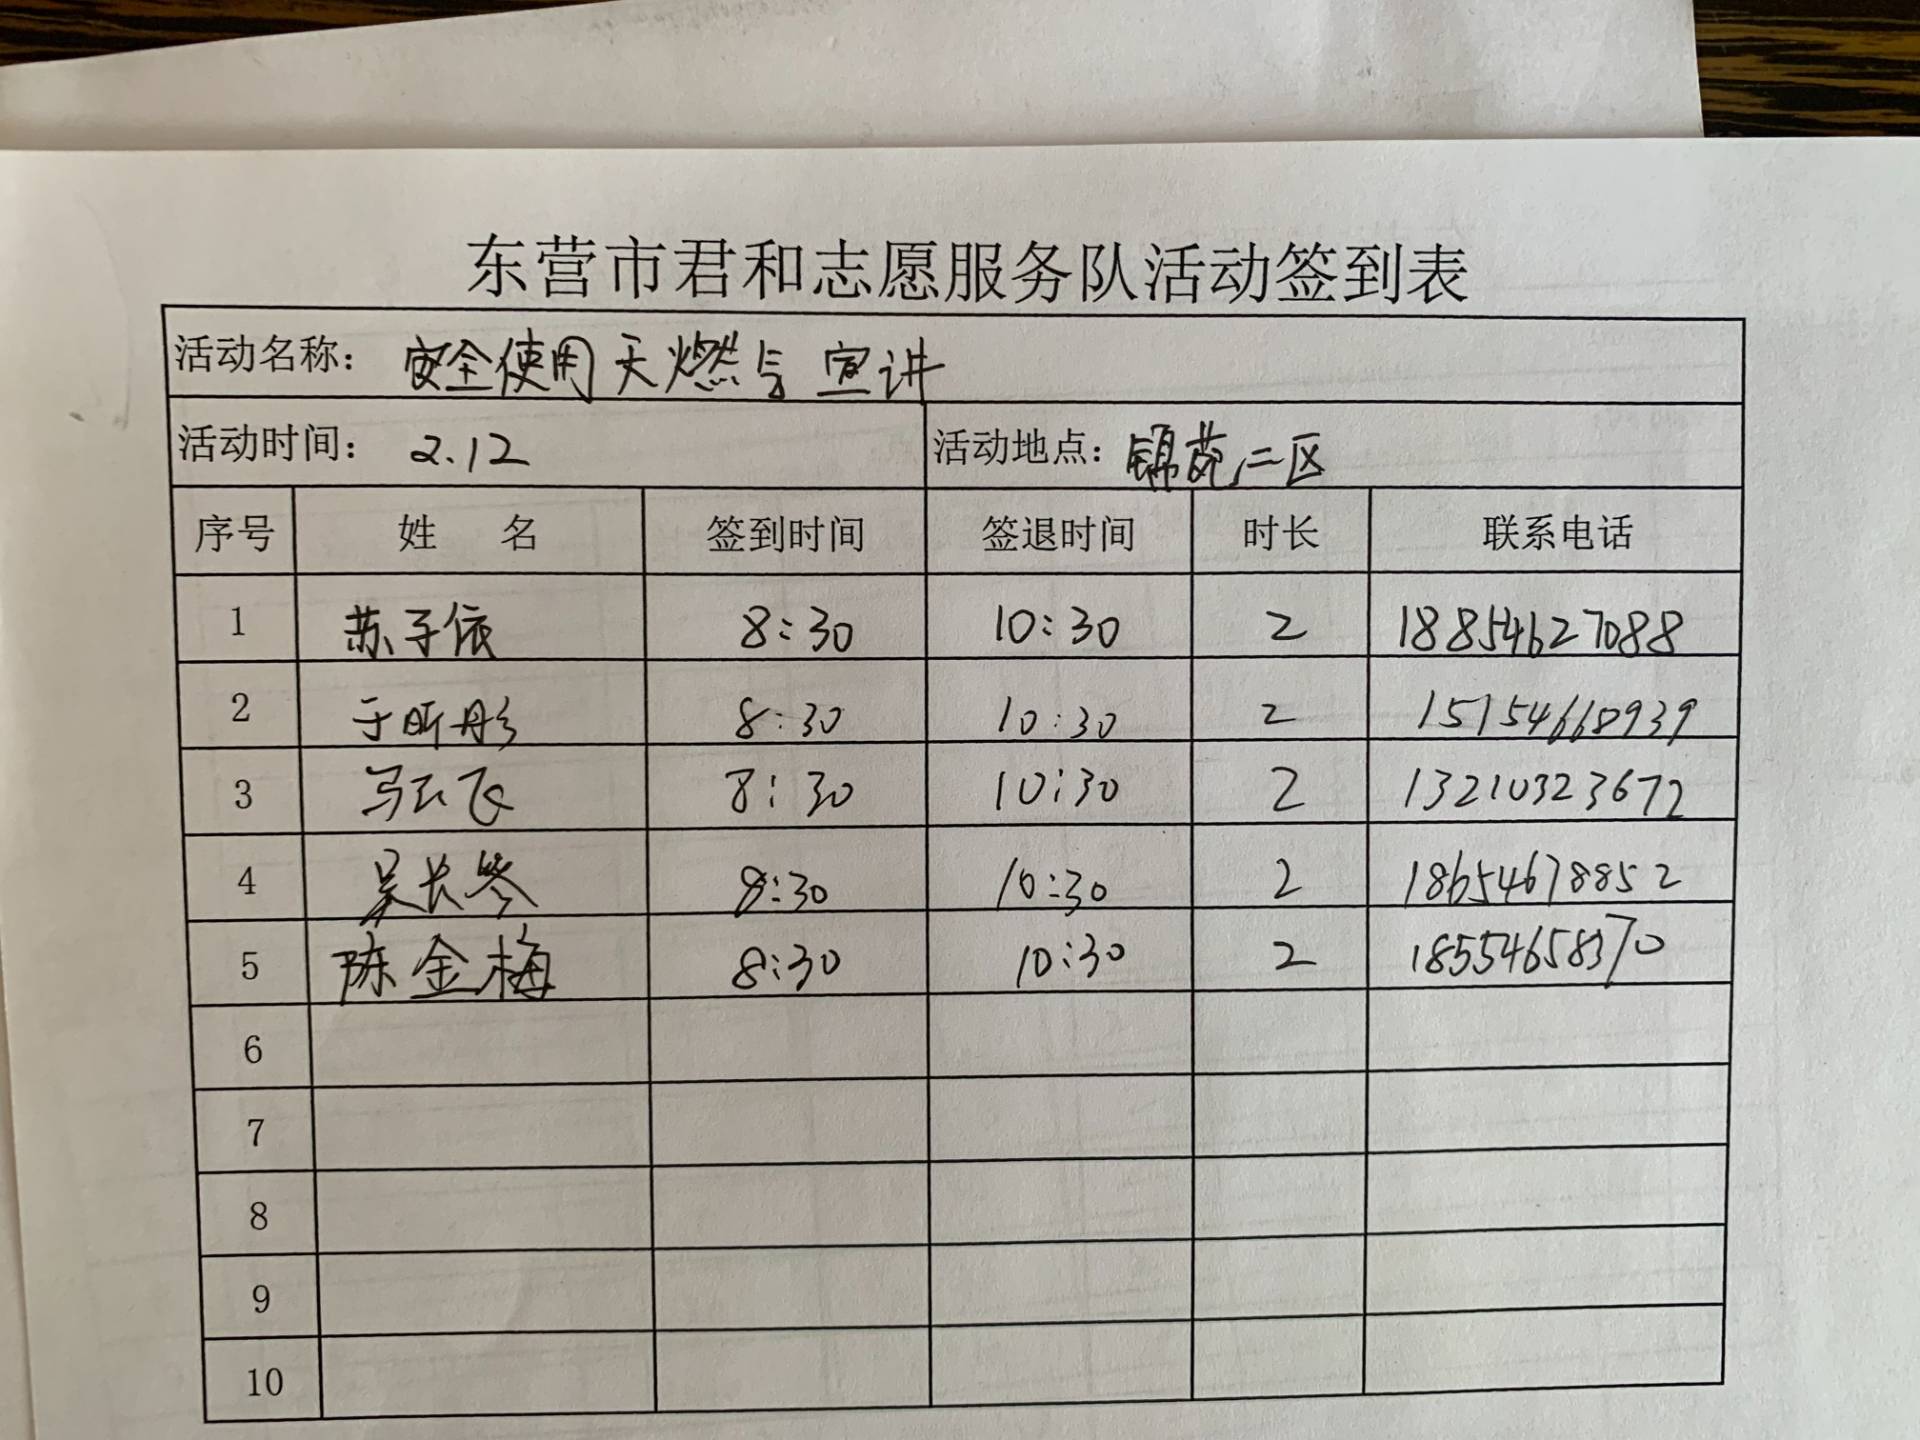 东营市君和志愿服务队活动签到表
活动名称： 安全使用天燃气宣讲
活动时间： 2.12 活动地点： 锦苑二区
序号 姓 名 签到时间 签退时间 时长 联系电话
1 苏子依 8:30 10:30 2 18854627088
2 于昕彤 8:30 10:30 2 15154668939
3 马云飞 8:30 10:30 2 13210323672
4 吴长岑 8:30 10:30 2 18654678852
5 陈金梅 8:30 10:30 2 18554658370
6
7
8
9
10